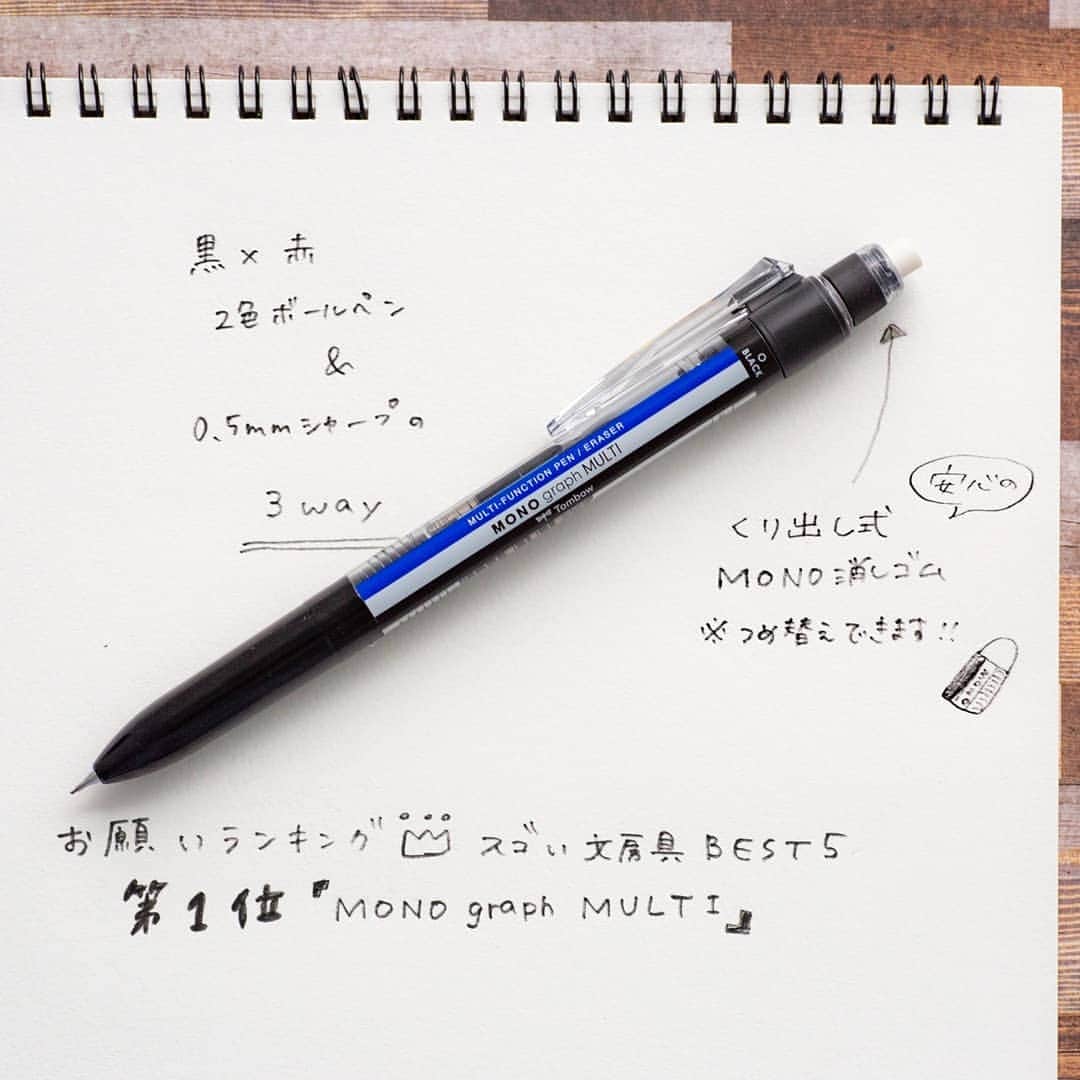 黒×赤
2色ボールペン
&
0.5mmシャープの
3 way
BLACK
MULTI-FUNCTION PEN / ERASER
MONO graph MULTI
Tombow
安心の
くり出し式
MONO消しゴム
※つめ替えできます!!
お願いランキング スゴい文房具 BEST5
第1位『MONO graph MULTI』